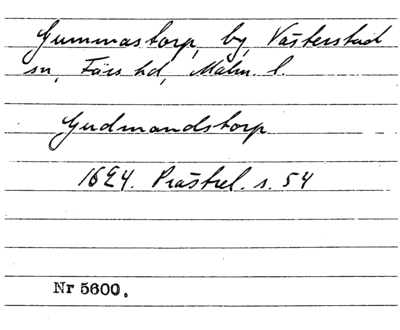 Gummastorp, by, Västerstad
sn, Färs hd, Malm. l.
Gudmandstorp
1624. Prästrel. s. 54
Nr 5600.